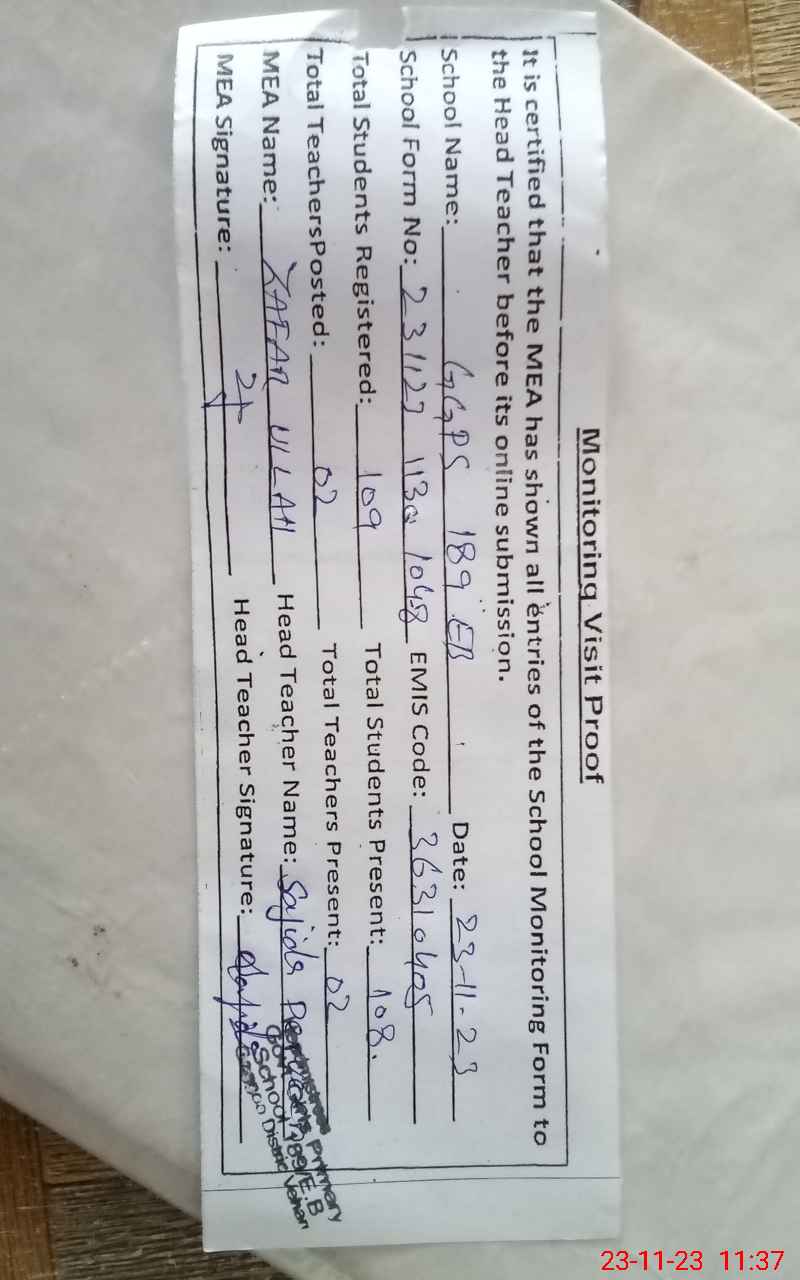 Monitoring Visit Proof
It is certified that the MEA has shown all entries of the School Monitoring Form to
the Head Teacher before its online submission.
School Name: GGPS 189 EB Date: 23-11-23
School Form No: 231123 1130 1048 EMIS Code: 36310405
Total Students Registered: 109 Total Students Present: 108.
Total TeachersPosted: 02 Total Teachers Present: 02
MEA Name: ZAFAR ULLAH Head Teacher Name: Sajida
MEA Signature: Head Teacher Signature:
Primary
School 189/E.B
District Vehari
23-11-23 11:37